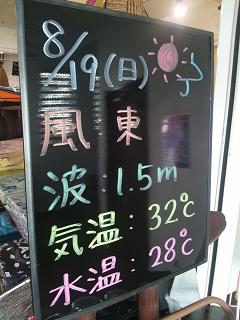 8/19(日)
風:東
波:1.5m
気温:32℃
水温:28℃